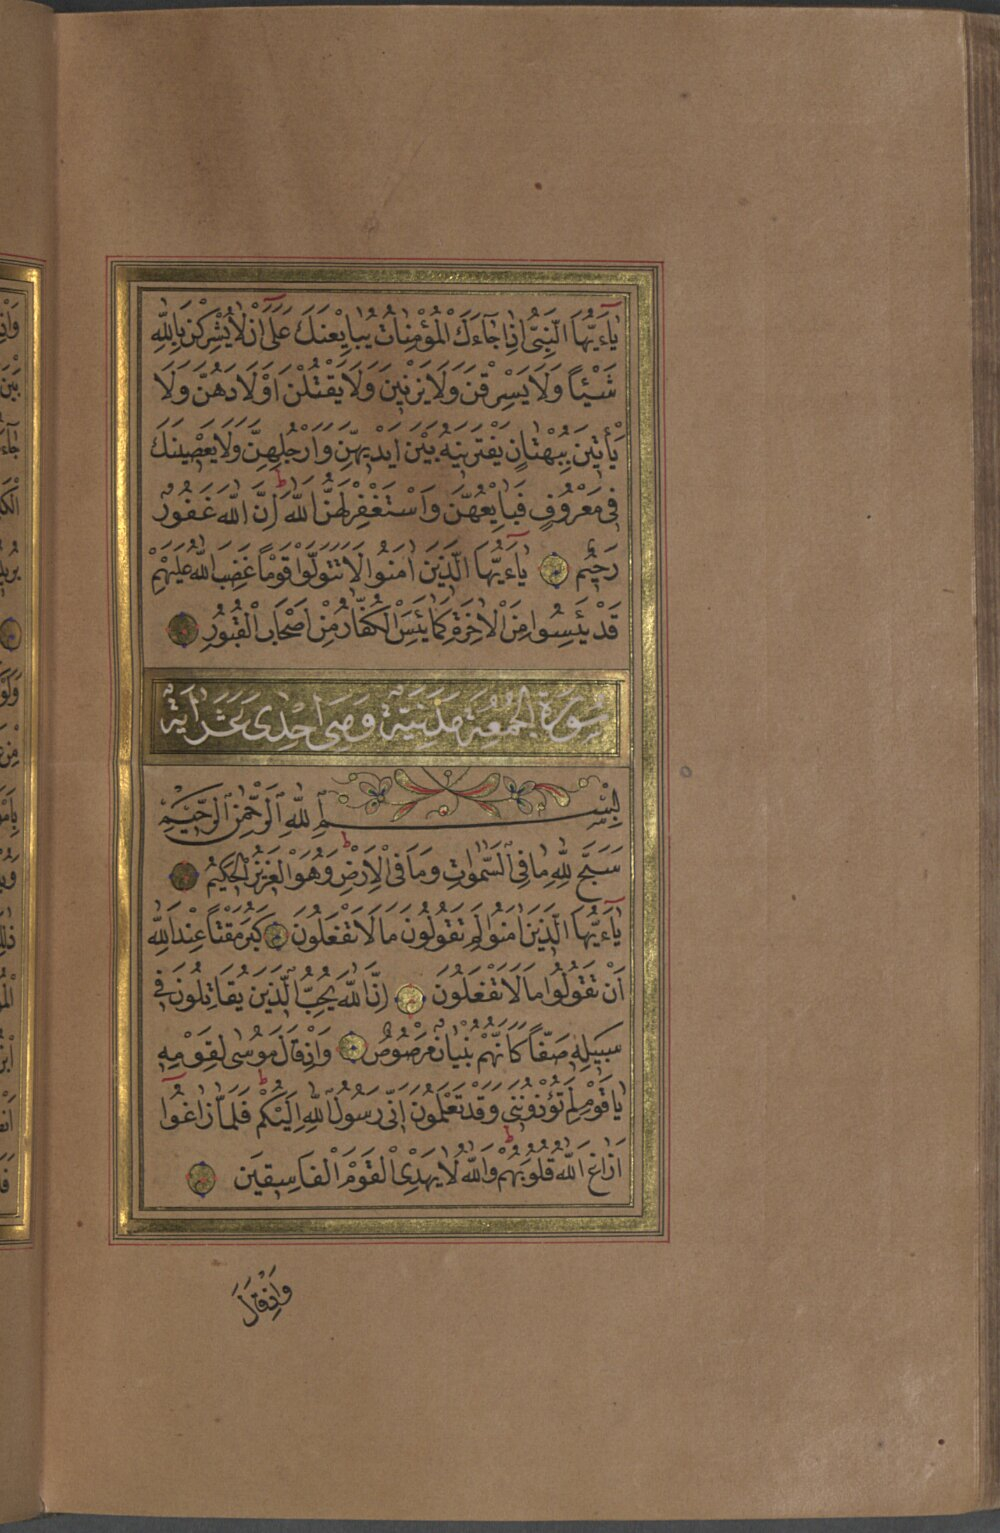 يَاءَيُّهَا النَّبِىُّ اِذَا جَاءَكَ الْمُؤْمِنَاتُ يُبَايِعْنَكَ عَلَى اَنْ لَا يُشْرِكْنَ بِاللّٰهِ
شَيْئًا وَلَا يَسْرِقْنَ وَلَا يَزْنِينَ وَلَا يَقْتُلْنَ اَوْلَادَهُنَّ وَلَا
يَأْتِينَ بِبُهْتَانٍ يَفْتَرِينَهُ بَيْنَ اَيْدِيهِنَّ وَاَرْجُلِهِنَّ وَلَا يَعْصِينَكَ
فِى مَعْرُوفٍ فَبَايِعْهُنَّ وَاسْتَغْفِرْ لَهُنَّ اللّٰهَ اِنَّ اللّٰهَ غَفُورٌ
رَحِيمٌ يَاءَيُّهَا الَّذِينَ اٰمَنُوا لَا تَتَوَلَّوْا قَوْمًا غَضِبَ اللّٰهُ عَلَيْهِمْ
قَدْ يَئِسُوا مِنَ الْاٰخِرَةِ كَمَا يَئِسَ الْكُفَّارُ مِنْ اَصْحَابِ الْقُبُورِ
سُورَةُ الْجُمُعَةِ مَدَنِيَّةٌ وَهِىَ اِحْدٰى عَشَرَ اٰيَةً
بِسْمِ اللّٰهِ الرَّحْمٰنِ الرَّحِيمِ
سَبَّحَ لِلّٰهِ مَا فِى السَّمٰوَاتِ وَمَا فِى الْاَرْضِ وَهُوَ الْعَزِيزُ الْحَكِيمُ
يَاءَيُّهَا الَّذِينَ اٰمَنُوا لِمَ تَقُولُونَ مَا لَا تَفْعَلُونَ كَبُرَ مَقْتًا عِنْدَ اللّٰهِ
اَنْ تَقُولُوا مَا لَا تَفْعَلُونَ اِنَّ اللّٰهَ يُحِبُّ الَّذِينَ يُقَاتِلُونَ فِى
سَبِيلِهِ صَفًّا كَاَنَّهُمْ بُنْيَانٌ مَرْصُوصٌ وَاِذْ قَالَ مُوسٰى لِقَوْمِهِ
يَا قَوْمِ لِمَ تُؤْذُونَنِى وَقَدْ تَعْلَمُونَ اَنِّى رَسُولُ اللّٰهِ اِلَيْكُمْ فَلَمَّا زَاغُوا
اَزَاغَ اللّٰهُ قُلُوبَهُمْ وَاللّٰهُ لَا يَهْدِى الْقَوْمَ الْفَاسِقِينَ
وَاِذْ قَالَ